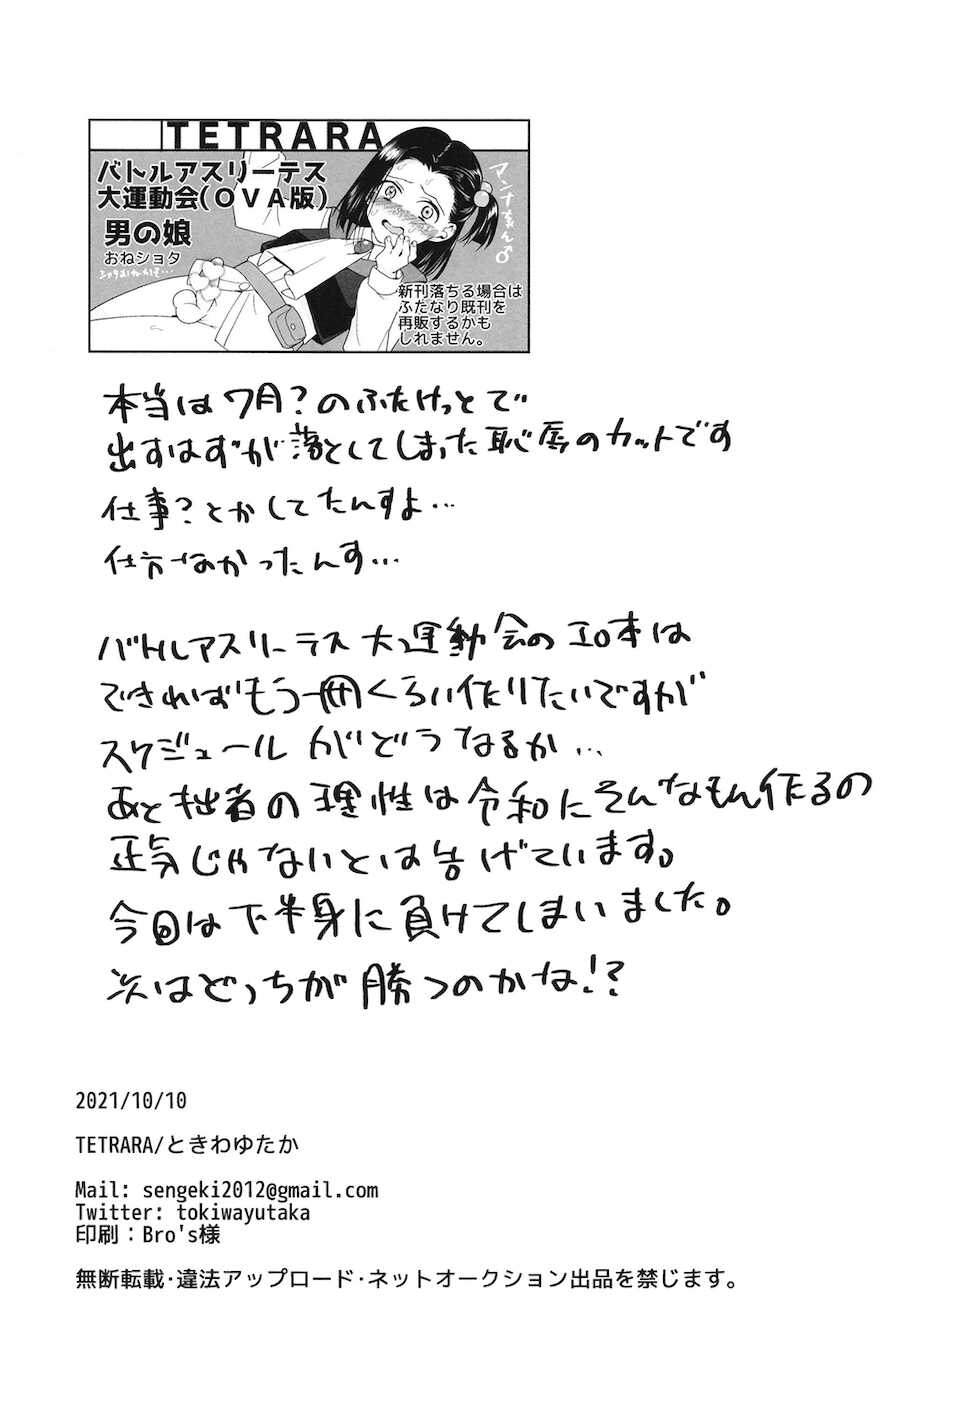 TETRARA
バトルアスリーテス
大運動会(OVA版)
男の娘
おねショタ
アンナきゅん♂
新刊落ちる場合は
ふたなり既刊を
再販するかも
しれません。
本当は7月?のふたけっとで
出すはずが落としてしまった恥辱のカットです
仕事?とかしてたんすよ…
仕方なかったんす…
バトルアスリーテス大運動会のエロ本は
できればもう一冊くらい作りたいですが
スケジュールがどうなるか…
あと拙者の理性は令和にそんなもん作るの
正気じゃないとは告げています。
今回は下半身に負けてしまいました。
次はどっちが勝つのかな!?
2021/10/10
TETRARA/ときわゆたか
Mail: sengeki2012@gmail.com
Twitter: tokiwayutaka
印刷:Bro's様
無断転載･違法アップロード･ネットオークション出品を禁じます。